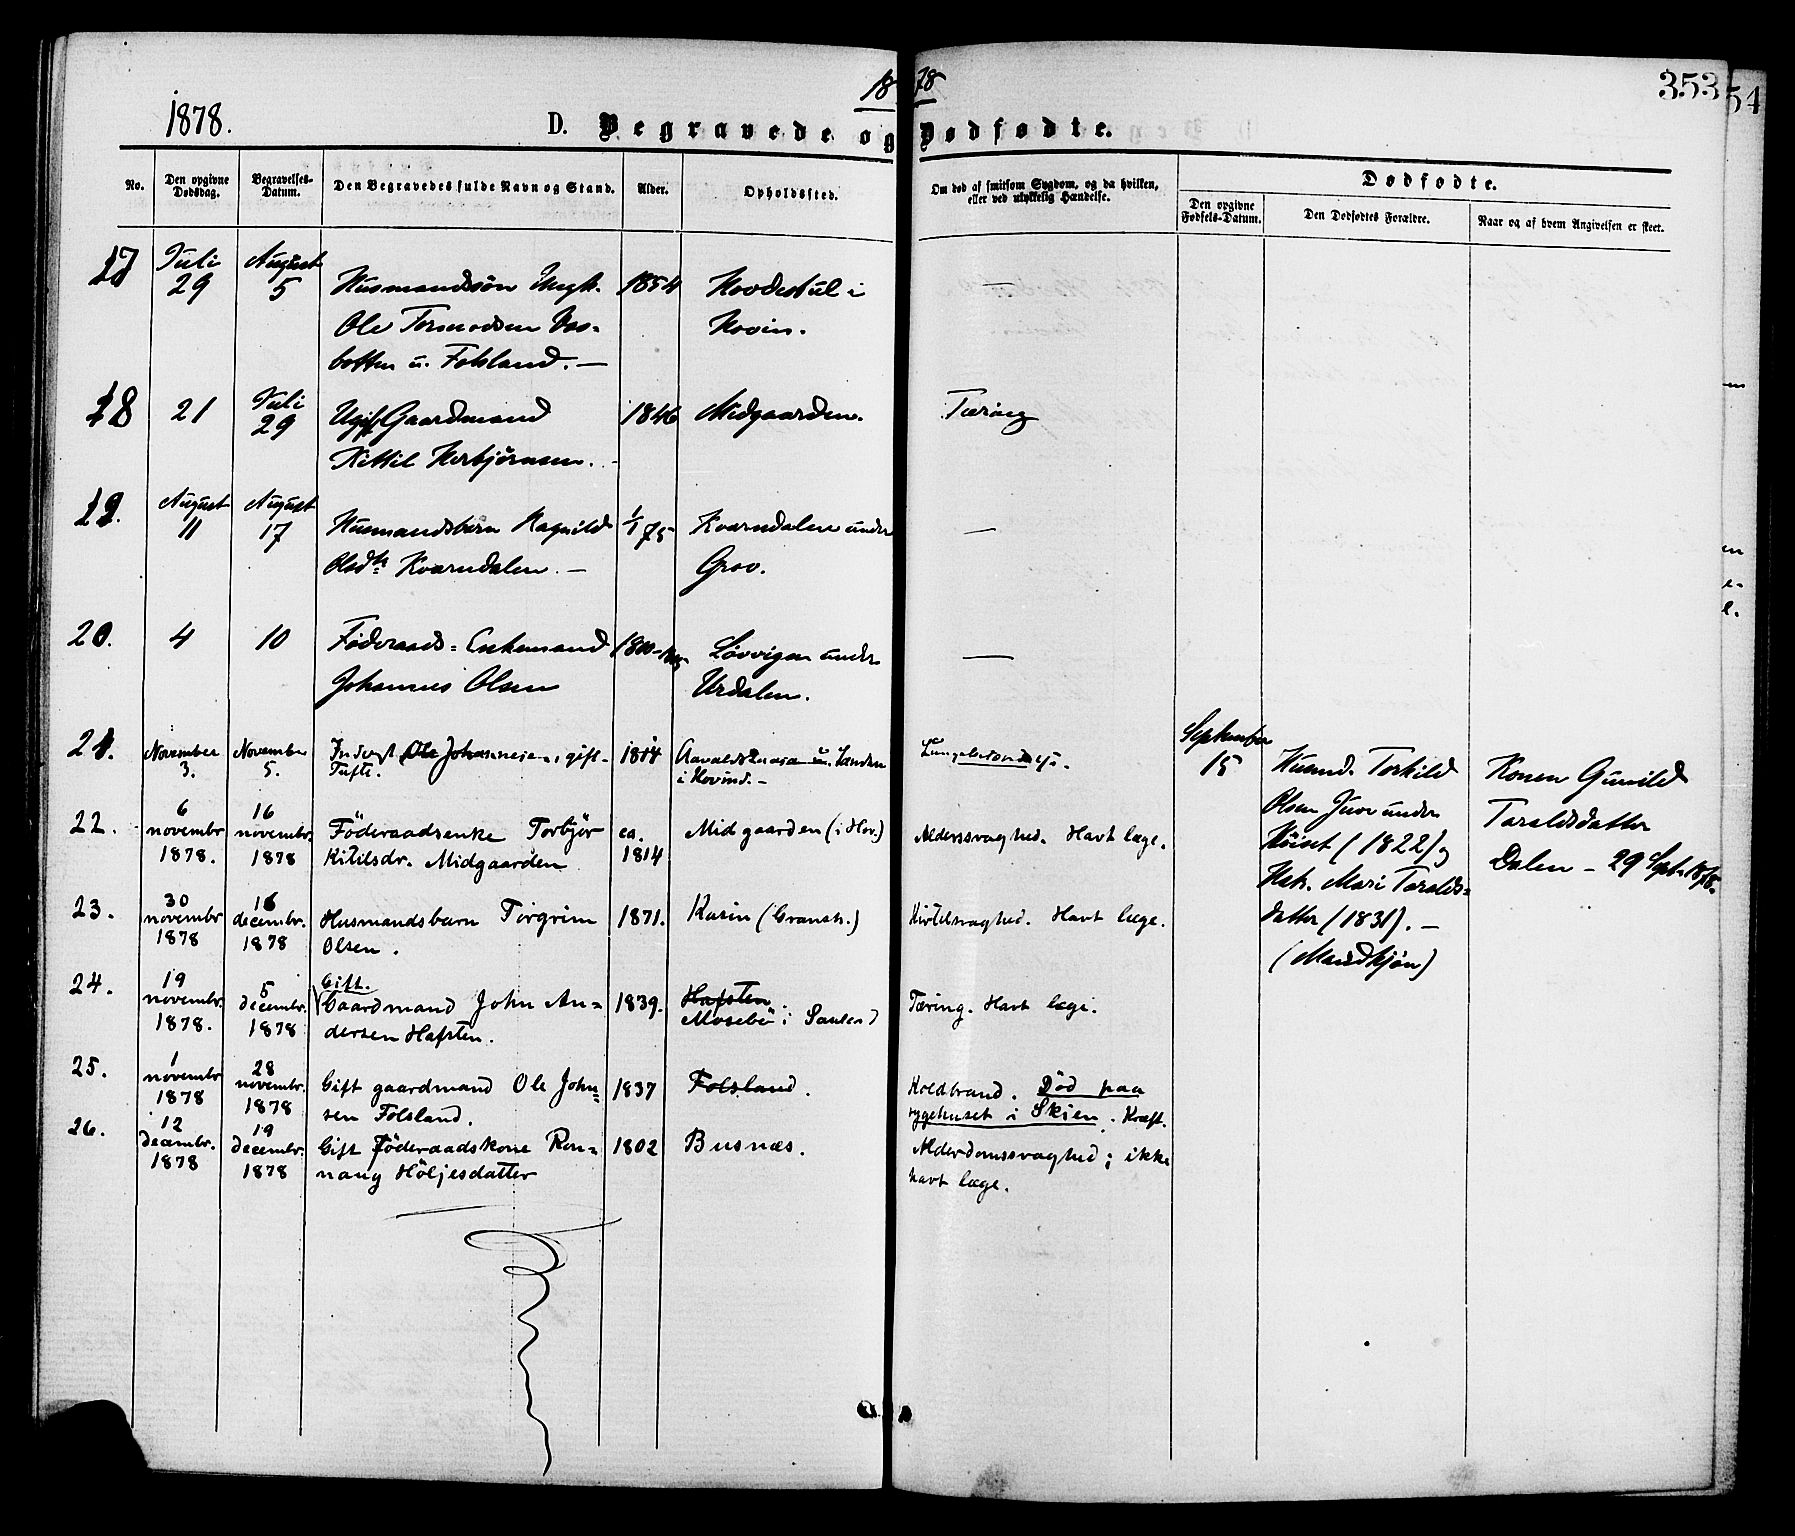 18 78
353
54
1878.
D. Begravede og Dødfødte.
No.
Den opgivne Dødsdag.
Begravelses-Datum.
Den Begravedes fulde Navn og Stand.
Alder.
Opholdssted.
Om død af smitsom Sygdom, og da hvilken, eller ved ulykkelig Hændelse.
Dødfødte.
Den opgivne Fødsels-Datum.
Den Dødfødtes Forældre.
Naar og af hvem Angivelsen er skeet.
17 Juli 29 August 5 Husmandsøn Ungk. 1854 Hovdestul i —
Ole Tormodsen Vas- Hovin.
botten u. Folsland. —
18 21 Juli 29 Ugift Gaardmand 1846 Midgaarden. Tæring
Kittil Herbjørnsen.
19. August 11 August 17 Husmandsbarn Ragnild 1/1 75 Kvarndalen under —
Olsdtr Kvarndalen. — Grov.
20. 4 10 Føderaads-Enkemand 1800 Løvvigen under —
Johannes Olsen Urdalen.
21. November 3. November 5. Inderst Ole Johannesen, gift 1814 Aavaldsland u. Sanden
Tufte. i Hovind. —
22. 6 novembr 1878. 16 novembr. 1878 Föderaadsenke Torbjör ca. 1814 Midgaarden (i Hov.) Alderssvaghed. Havt læge.
Kitilsdr. Midgaarden
23. 30 novembr 1878 16 decembr. 1878 Husmandsbarn Torgrim 1871. Kasin (Gransh.) Kirtelsvaghed. Havt læge.
Olsen.
24. 19 novembr. 1878. 5 decembr. 1878 Gift. Gaardmand John An= 1839. Hafsten Tæring. Havt læge.
dersen Hafsten. Mosebö i Sauland
25. 1 novembr 1878 28 novembr. 1878 Gift gaardmand Ole John= 1837 Folsland. Koldbrand. Död paa
sen Folsland. sygehuset i Skien. Kræft.
26. 12 decembr. 1878 19 decembr. 1878 Gift Föderaadskone Ron= 1802 Busnæs. Alderdomssvaghed; ikke
naug Höljesdatter havt læge.
September 15
Husmd. Torkild
Olsen Juve under
Høiset (1822) og
Hstr. Mari Taralds=
datter (1831). —
(Mandkjøn)
Konen Gunild
Taraldsdatter
Dalen — 29 Sept. 1878.